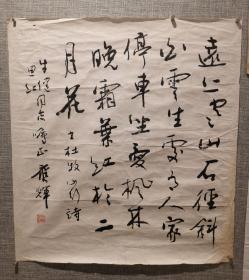 遠上寒山石徑斜
白雲生處有人家
停車坐愛楓林
晚霜葉紅於二
月花 杜牧山行詩
同志 正